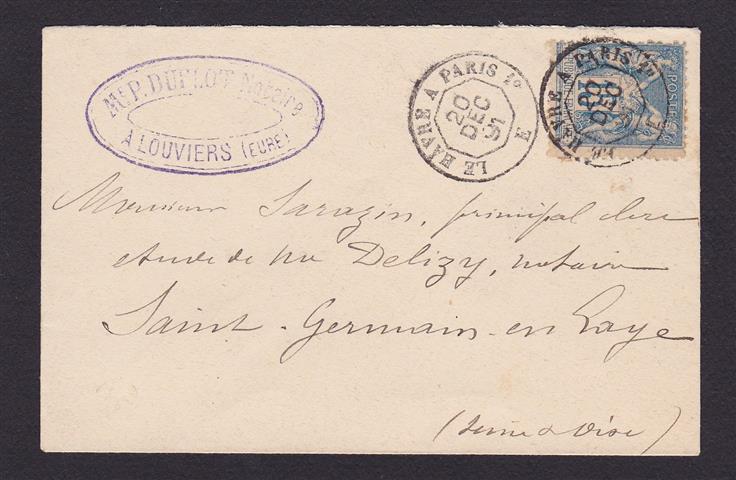 Me P. DUFLOT Notaire
A LOUVIERS (EURE)
LE HAVRE A PARIS 1o
20
DEC
91
E
LE HAVRE A PARIS 1o
20
DEC
91
E
POSTES
Monsieur Sarazin, principal clerc
étude de Me Delizy, notaire
Saint-Germain-en Laye
(Seine & Oise)